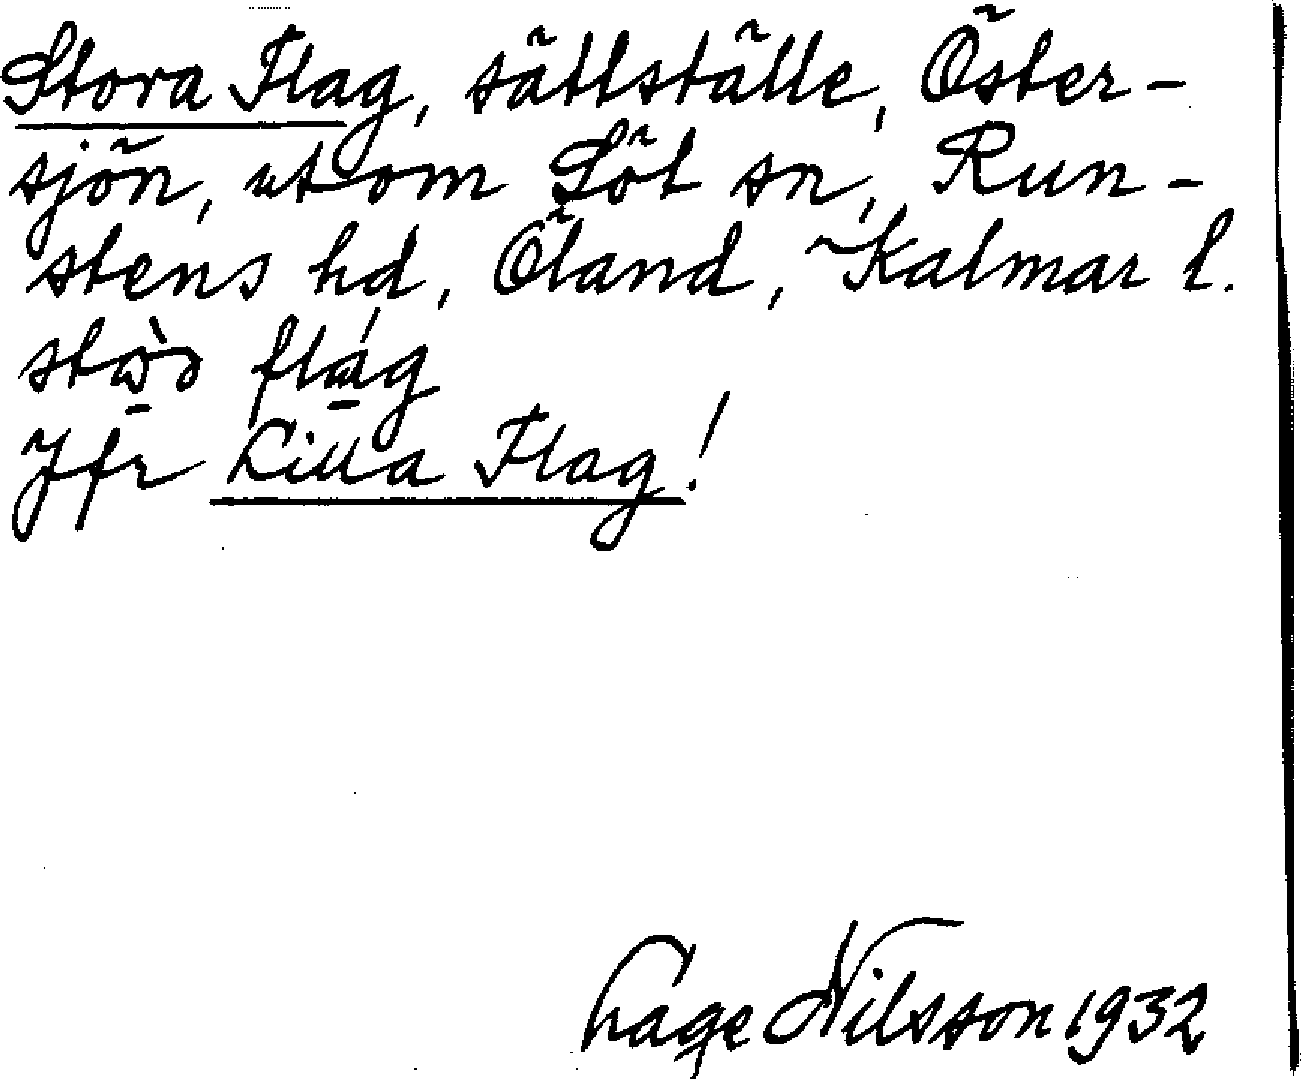 Stora Flag, sättställe, Öster-
sjön, utom Löt sn, Run-
stens hd, Öland, Kalmar l.
Jfr Lilla Flag!
Lage Nilsson 1932